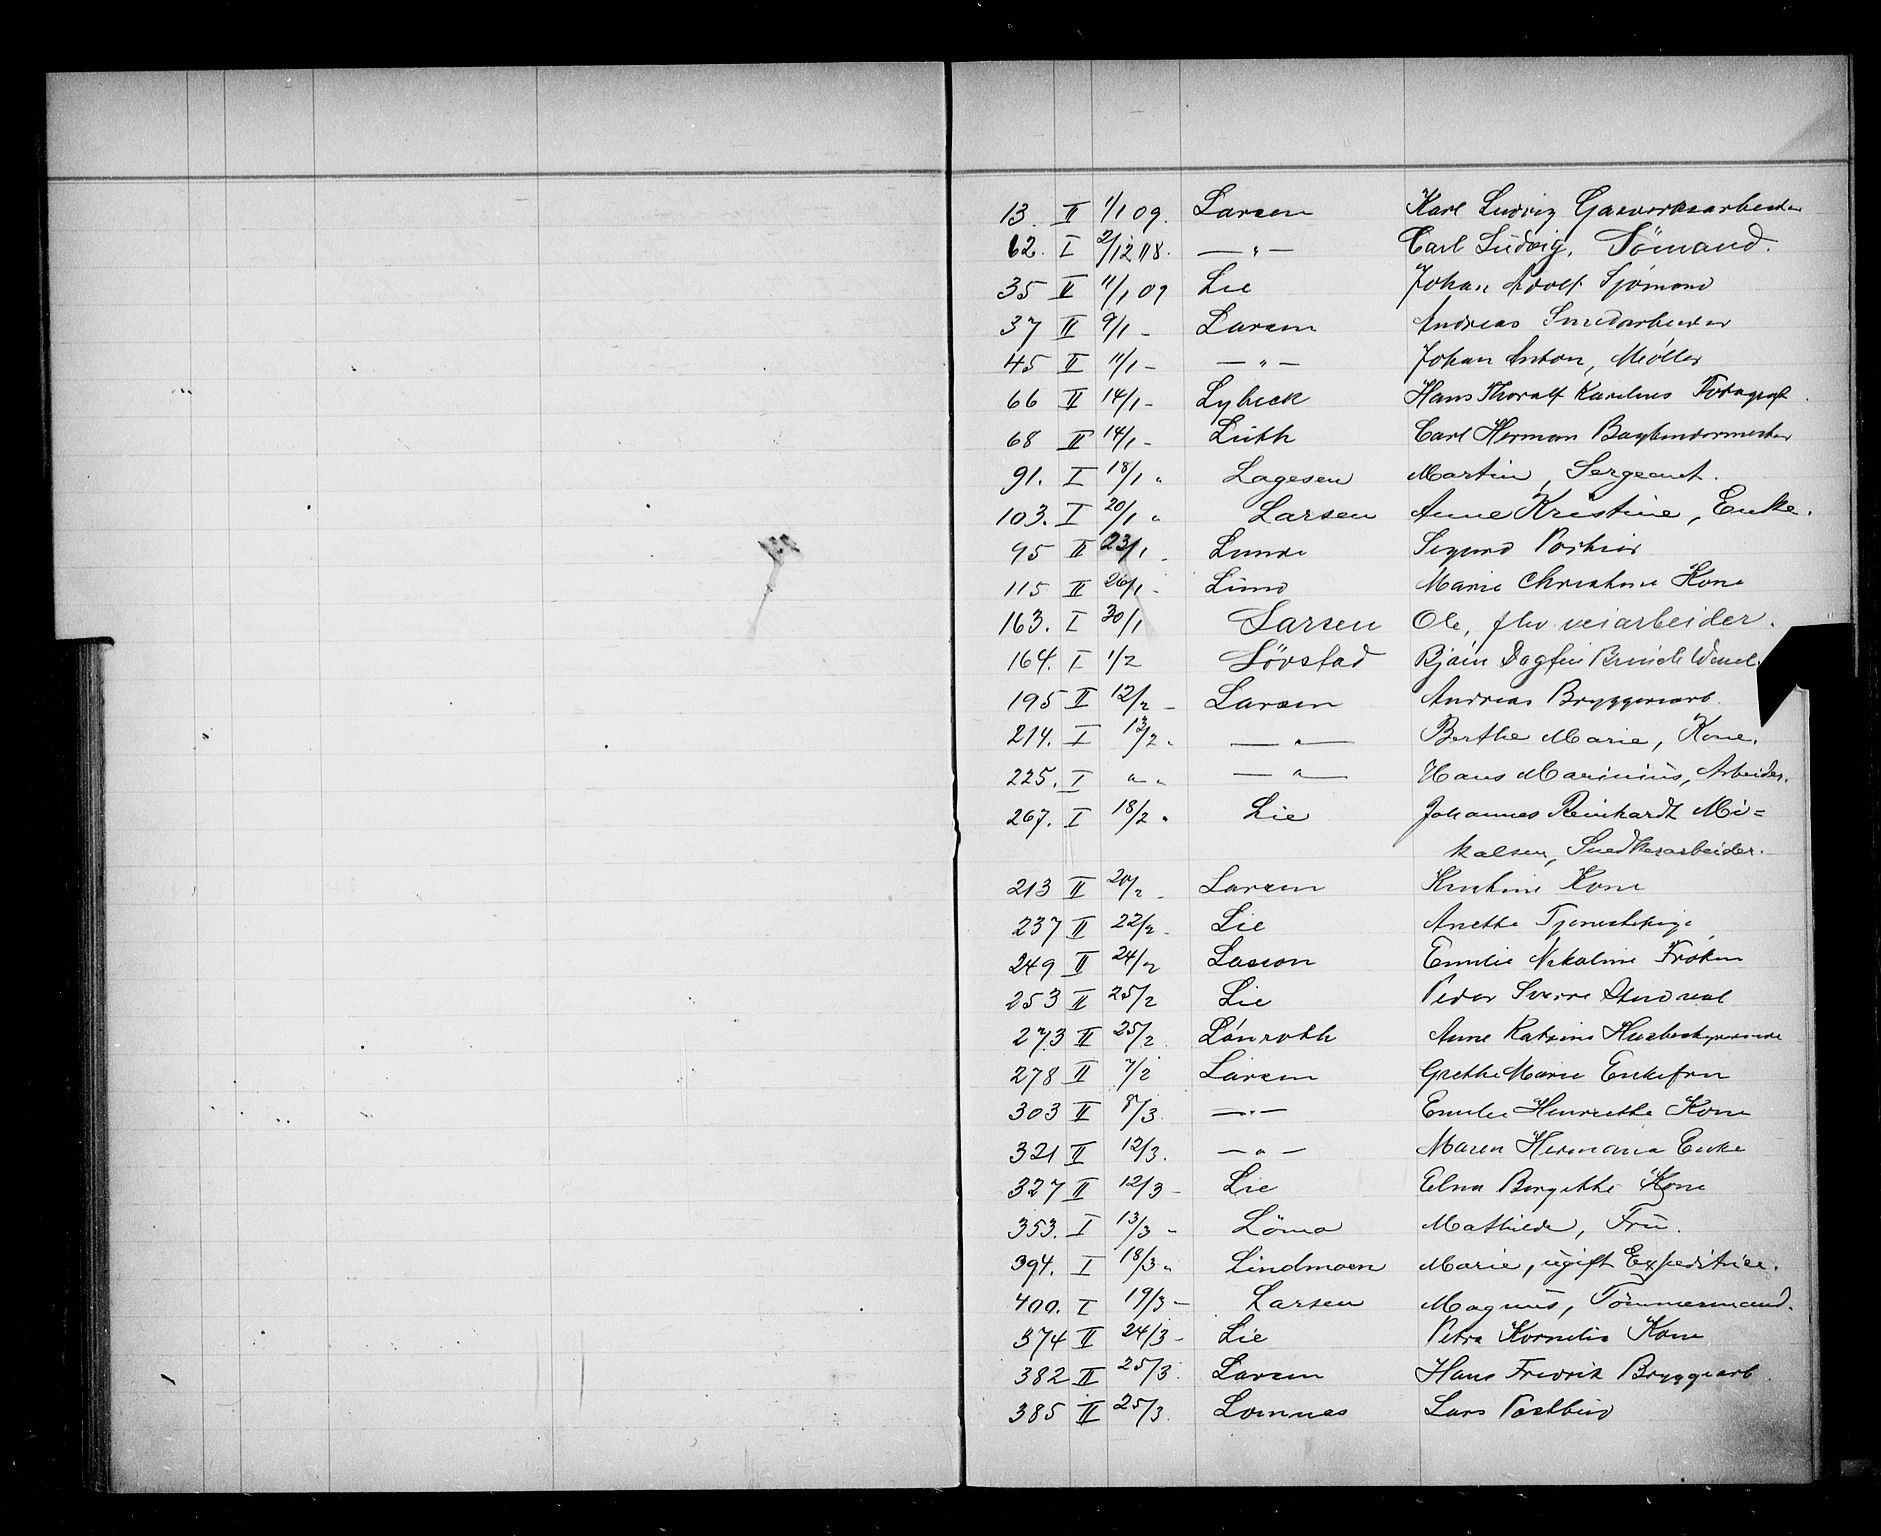 13. II 1/1 09. Larsen Karl Ludvig Gasverksarbeider
62. I 2/12 08. — " — Carl Ludvig, Sömand.
35 II 11/1 09 Lie Johan Adolf Sjømand
37 II 9/1 - Larsen Andreas Smedarbeider
45 II 11/1 - — " — Johan Anton, Møller
66 II 14/1 - Lybeck Hans Thoralf Karelius Fotograf.
68 II 14/1 - Lüth Carl Herman Bogbindermester
91. I 18/1 " Lagesen Martin, Sergeant.
103. I 20/1 " Larsen Anne Kristine, Enke.
95 II 23/1 - Lunde Sigurd
115 II 26/1 - Lund Marie Christine Kone
163. I 30/1 Larsen Ole, fhv. veiarbeider.
164. I 1/2 Lövstad Dagfin
195 II 12/2 - Larsen Andreas Bryggeriarb.
214. I 13/2 " — " — Berthe Marie, Kone.
225. I " " — " — Hans Marinius, Arbeider.
267. I 18/2 " Lie Johannes Reinhardt Mi=
kalsen, Snedkerarbeider.
213 II 20/2 - Larsen Kristine Kone
237 II 22/2 - Lie Anette Tjenestepige
249 II 24/2 Lasson Emilie Nikoline Frøken
253 II 25/2 Lie Peder Sverre
273 II 25/2. Lönroth Anne Katrine Husbestyrerinde
278 II 7/2 Larsen Grethe Marie Enkefru
303 II 8/3. — " — Emilie Henriette Kone
321 II 12/3. — " — Maren Hermana Enke
327 II 12/3 - Lie Elna Bergitte Kone
353. I 13/3 " Mathilde, Frü.
394. I 18/3 " Lindmoen Marie, ugift Expeditrice.
400. I 19/3 - Larsen Magnus, Tömmermand.
374 II 24/3 - Lie Petra Kornelia Kone
382 II 25/3. Larsen Hans Fredrik Bryggearb.
385 II 25/3. Lomnes Lars Postbud